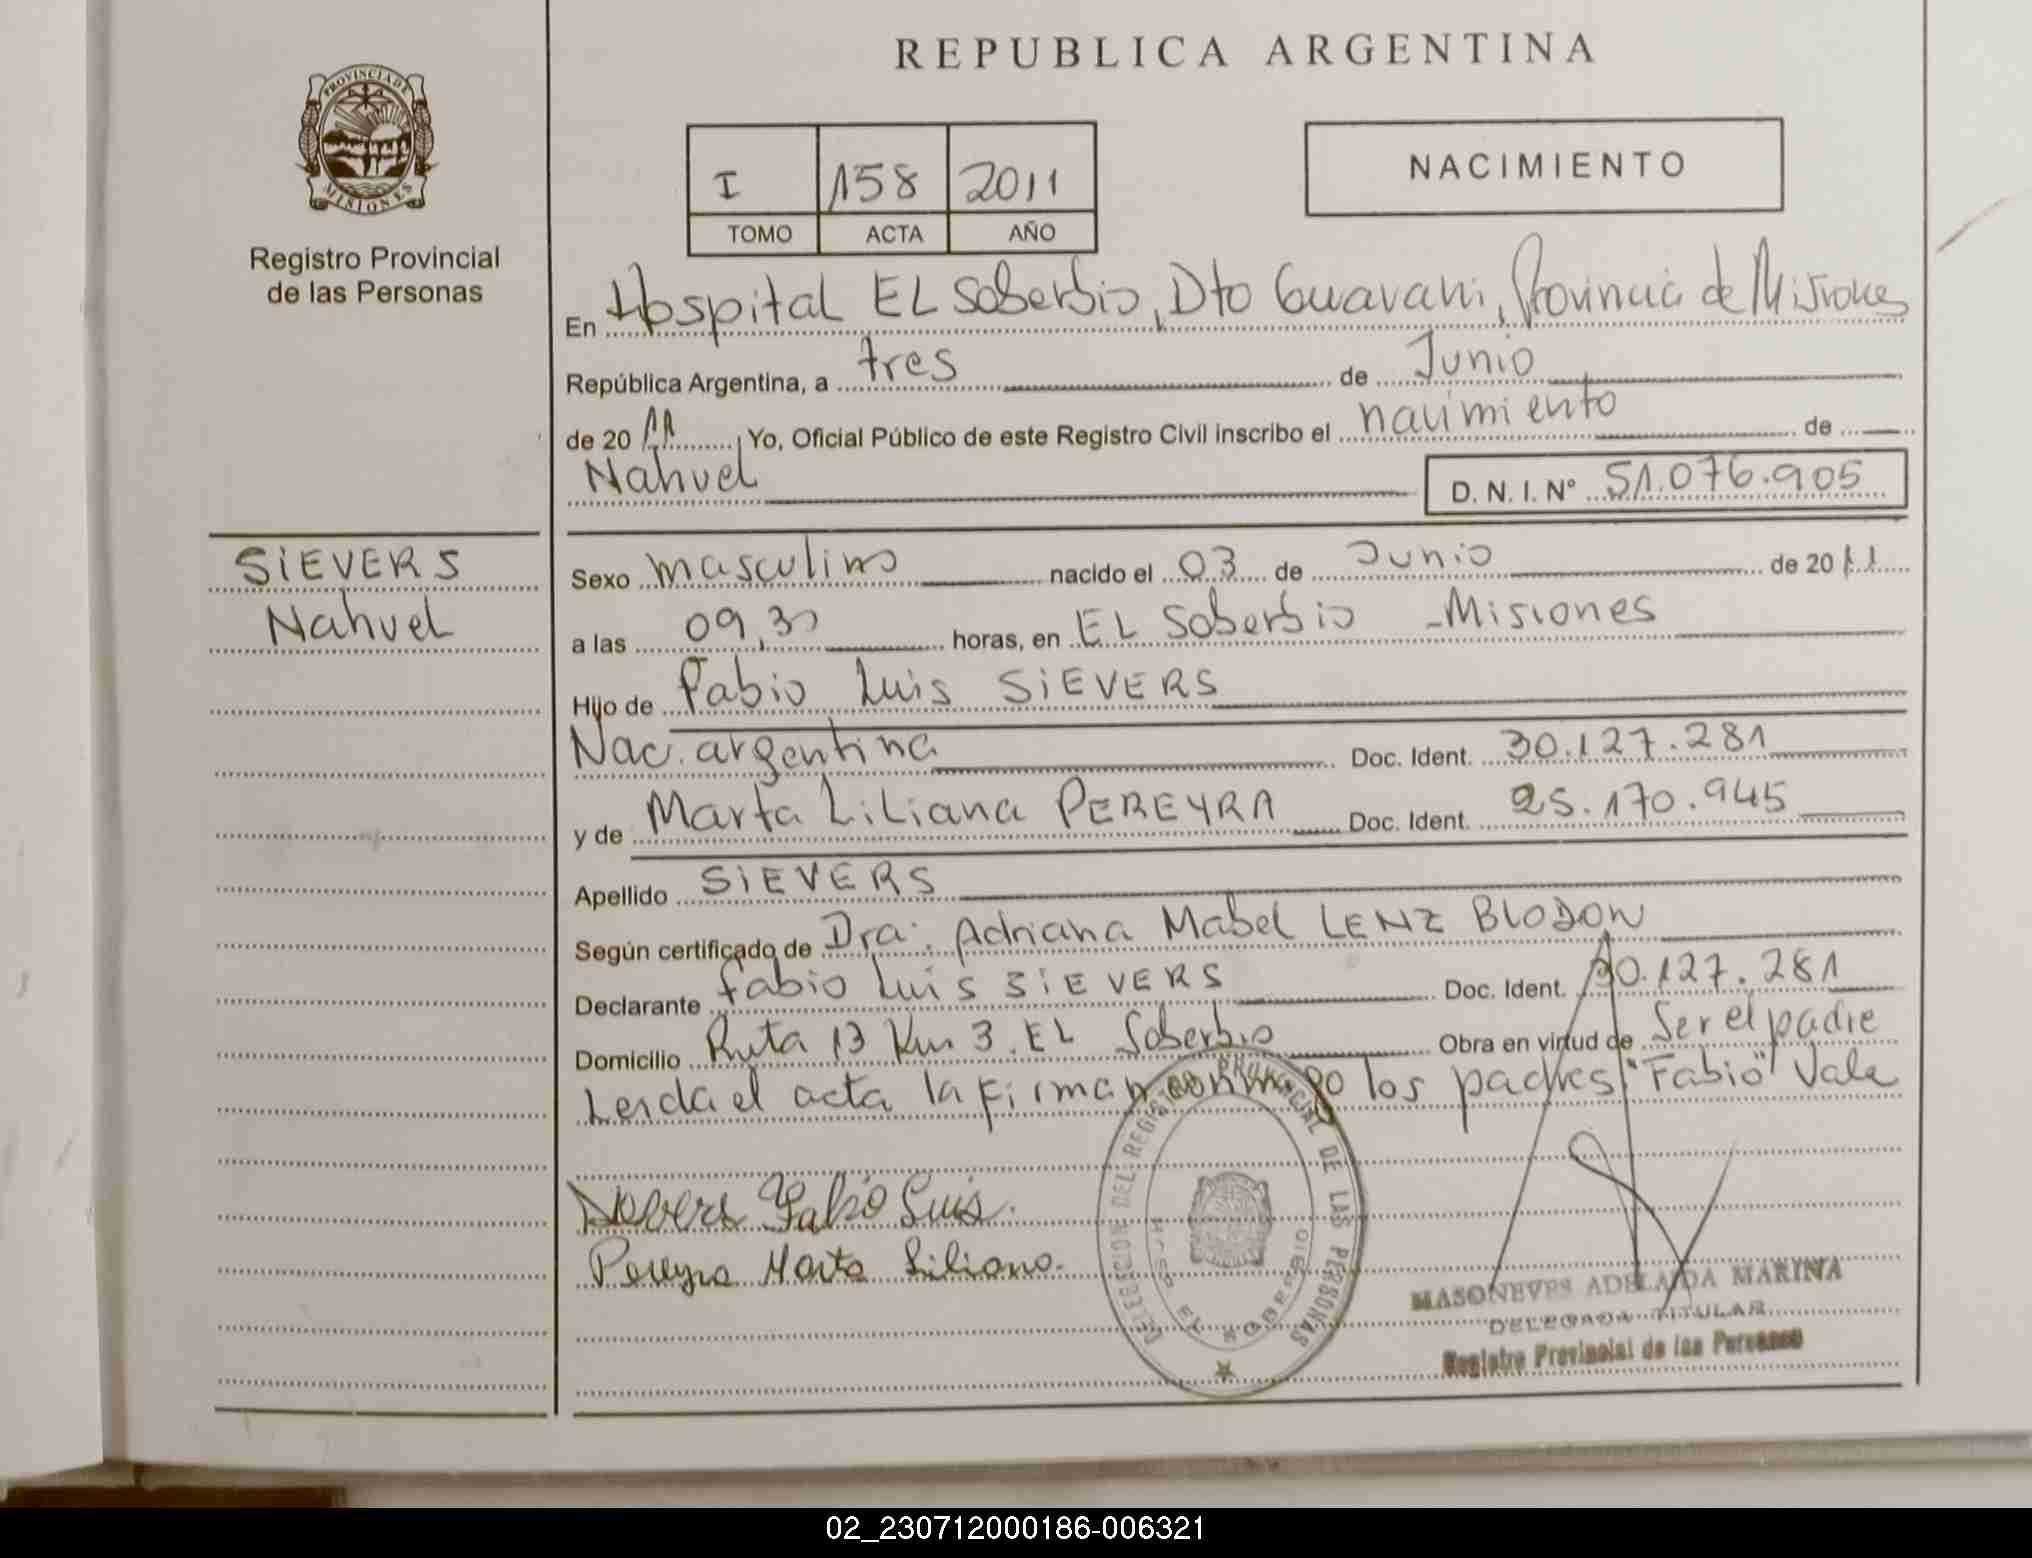 REPUBLICA ARGENTINA
PROVINCIA DE
MISIONES
Registro Provincial
de las Personas
I 158 2011
TOMO ACTA AÑO
NACIMIENTO
En Hospital EL Soberbio, Dto Guarani, Provincia de Misiones
República Argentina, a tres de Junio
de 20 11 Yo, Oficial Público de este Registro Civil inscribo el nacimiento de
Nahuel D. N. I. Nº 51.076.905
SiEVERS
Nahuel
Sexo masculino nacido el 03 de Junio de 20 11
a las 09,30 horas, en EL Soberbio - Misiones
Hijo de Fabio Luis SiEVERS
Nac. argentina Doc. Ident. 30.127.281
y de Marta Liliana PEREYRA Doc. Ident. 25.170.945
Apellido SiEVERS
Según certificado de Dra. Adriana Mabel LENZ BLODON
Declarante Fabio Luis SiEVERS Doc. Ident. 30.127.281
Domicilio Ruta 13 Km 3. EL Soberbio Obra en virtud de Ser el padre
Leida el acta la firman conmigo los padres "Fabio" Vale
Sievers Fabio Luis.
Pereyra Marta Liliana.
DELEGACION DEL REGISTRO PROVINCIAL DE LAS PERSONAS
HOSP. EL SOBERBIO
MASONEVES ADELAIDA MARINA
DELEGADA TITULAR
Registro Provincial de las Personas
02_230712000186-006321